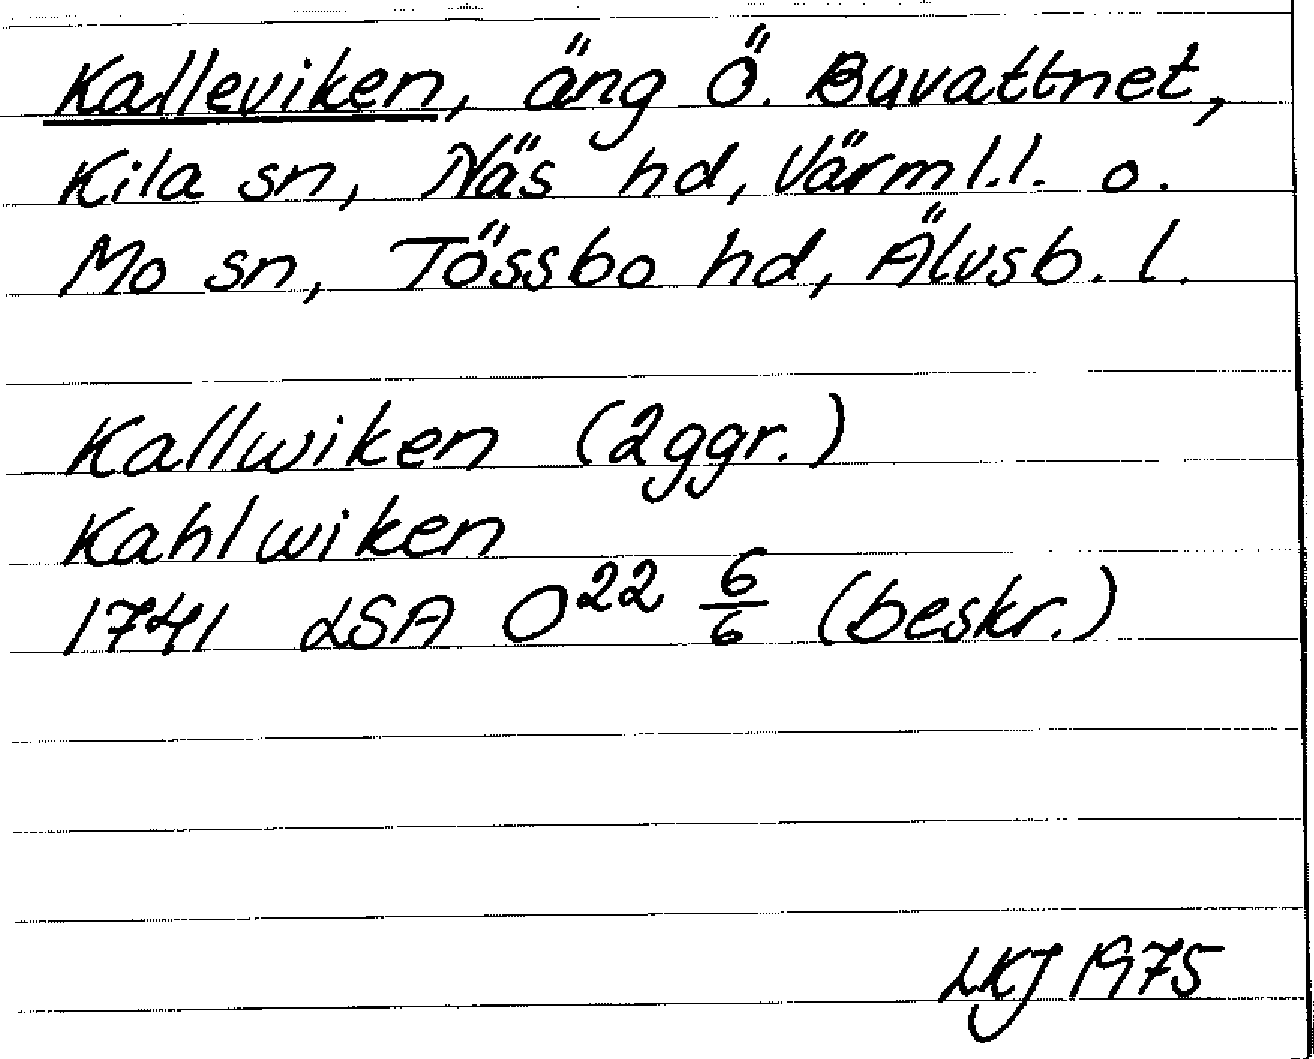 Kalleviken, äng Ö. Buvattnet,
Kila sn, Näs hd, Värml.l. o.
Mo sn, Tössbo hd, Älvsb. l.
Kallwiken (2ggr.)
Kahlwiken
1741 LSA O22 6/6 (beskr.)
LKJ 1975